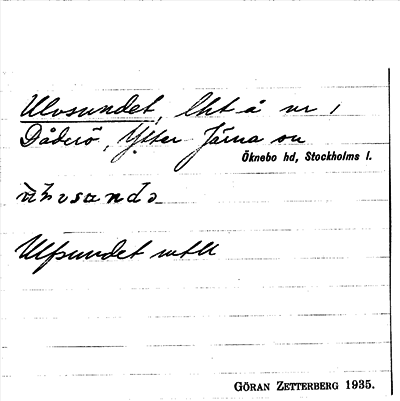 Ulvsundet, lht å nr 1
Dåderö, Ytter Järna sn
Öknebo hd, Stockholms l.
Ulfsundet mtll
GÖRAN ZETTERBERG 1935.